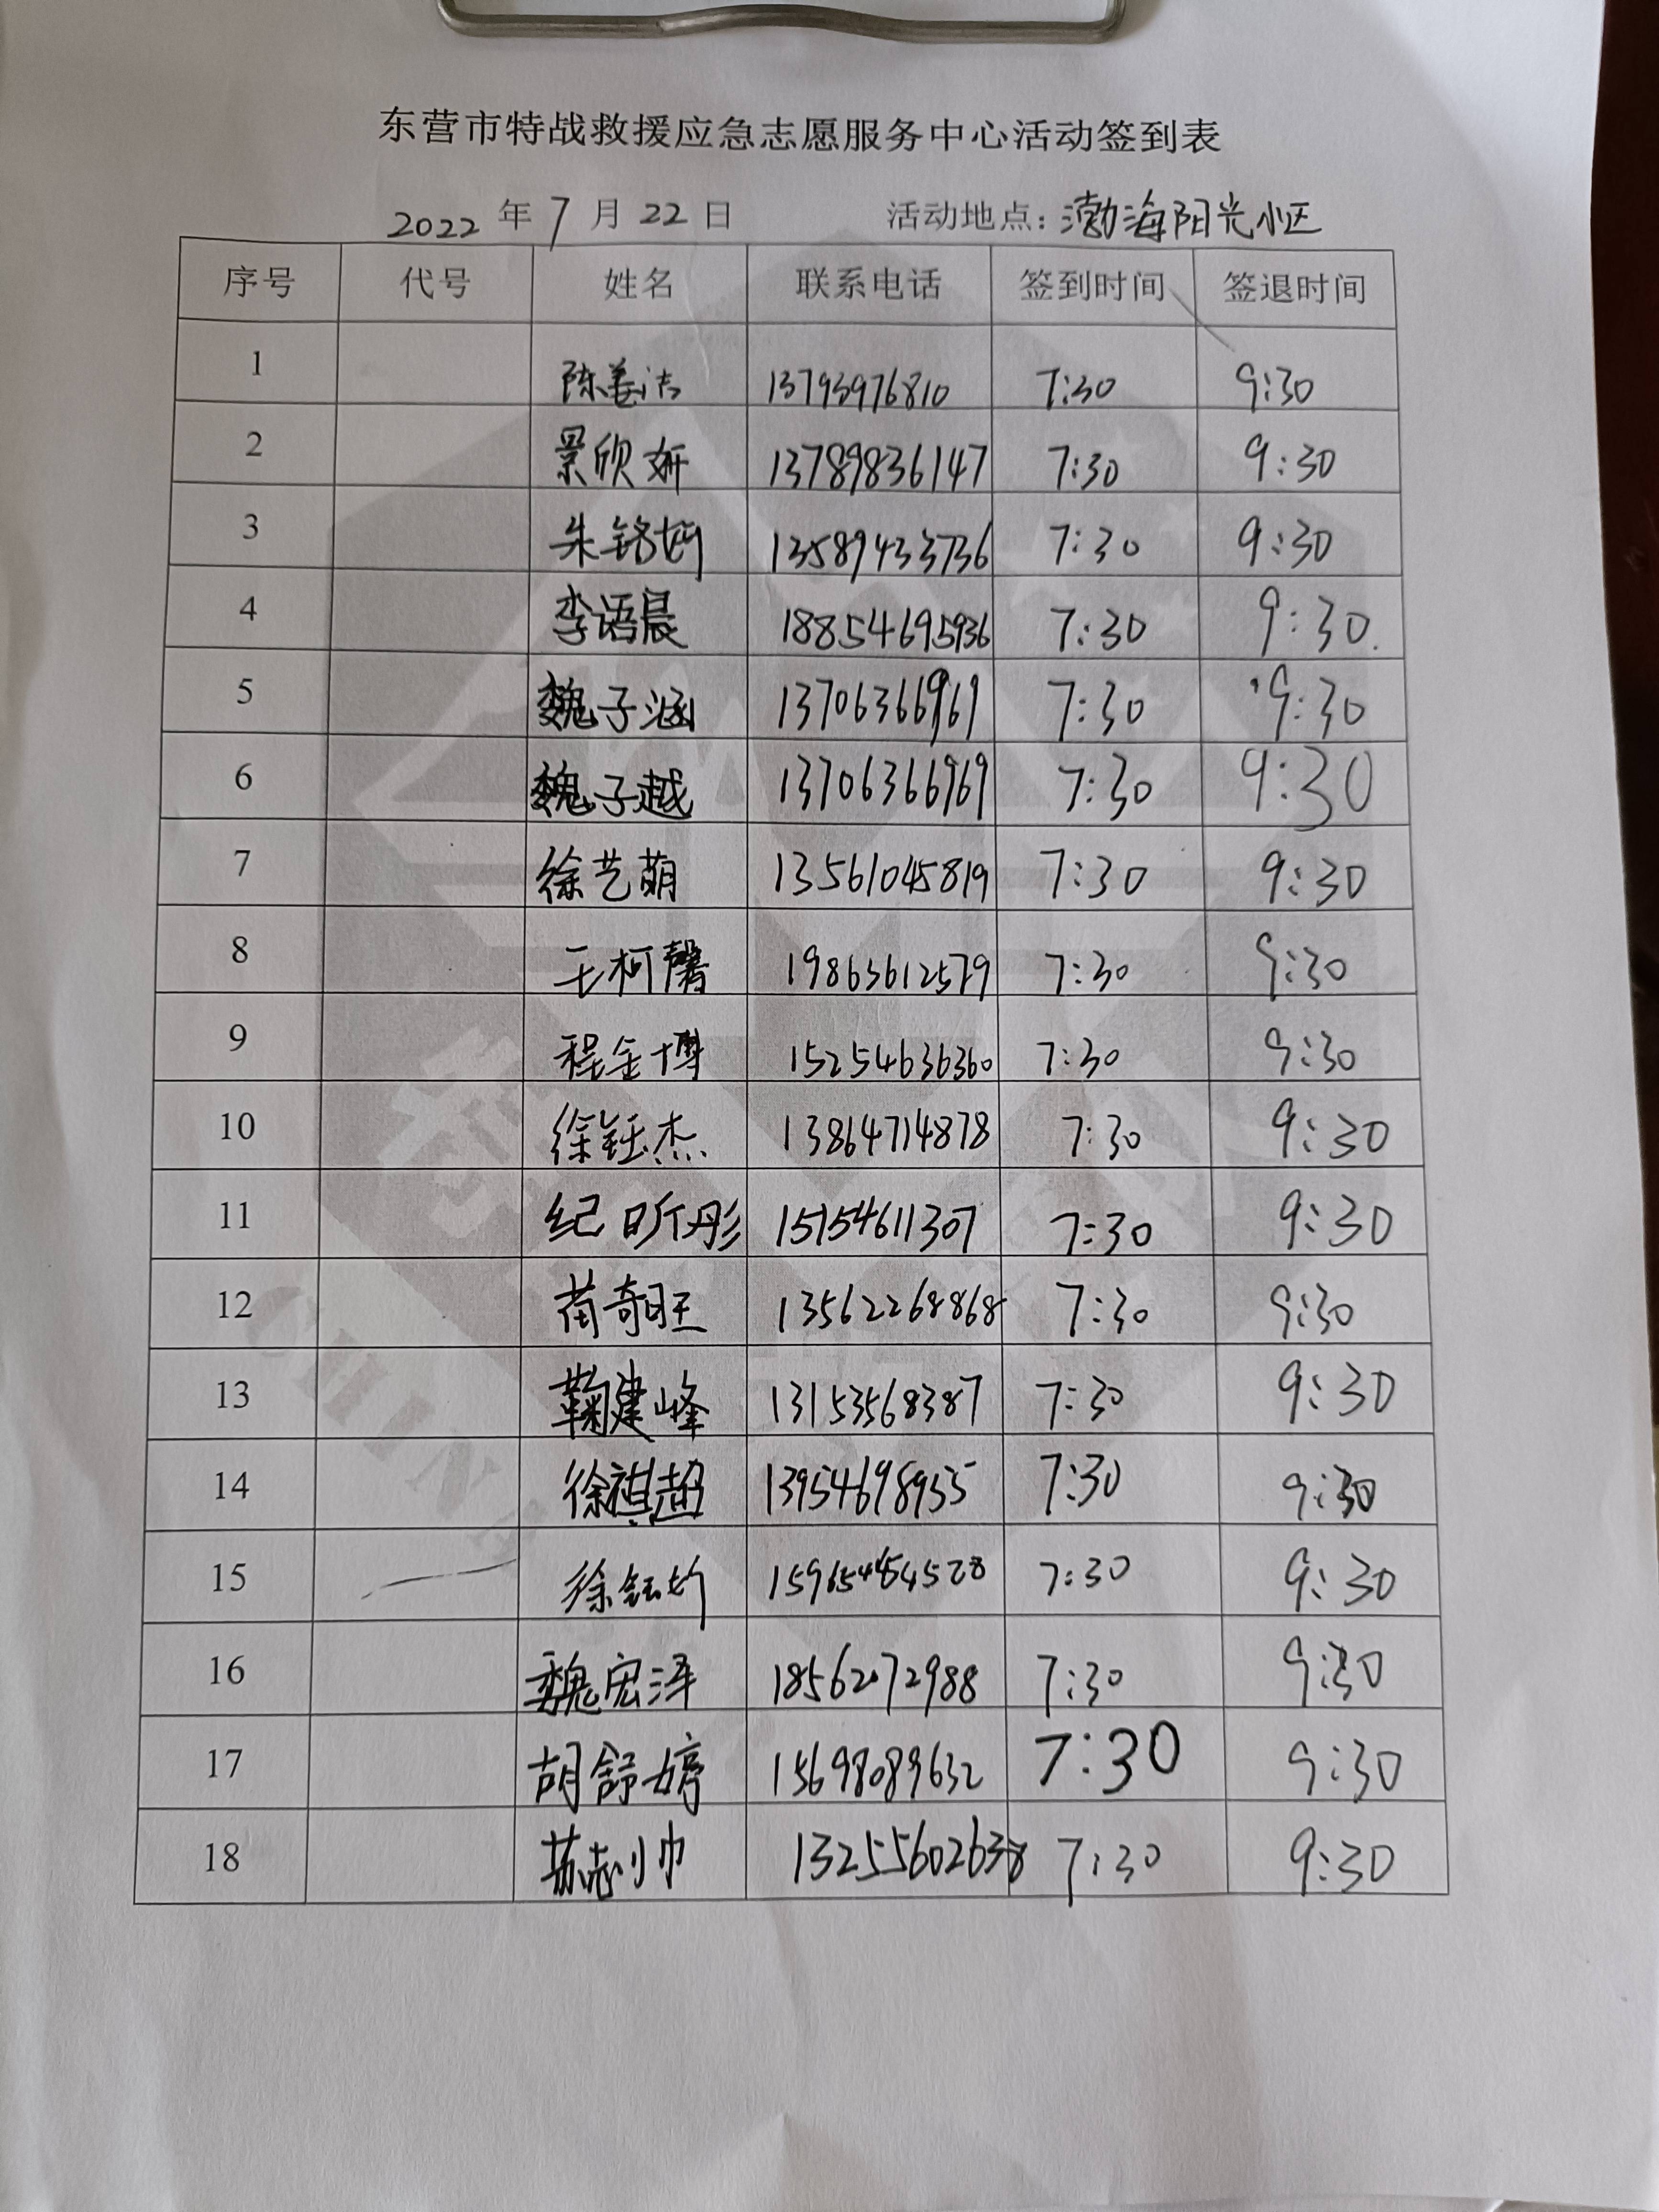 东营市特战救援应急志愿服务中心活动签到表
2022 年 7 月 22 日 活动地点: 渤海阳光小区
序号 代号 姓名 联系电话 签到时间 签退时间
1 陈姜洁 13793976810 7:30 9:30
2 景欣妍 13789836147 7:30 9:30
3 朱铭妍 13589433736 7:30 9:30
4 李语晨 18854695936 7:30 9:30.
5 魏子涵 13706366969 7:30 9:30
6 魏子越 13706366969 7:30 9:30
7 徐艺萌 13561045819 7:30 9:30
8 王柯馨 19863612579 7:30 9:30
9 程金博 15254636360 7:30 9:30
10 徐钰杰 13864714878 7:30 9:30
11 纪昕彤 15154611307 7:30 9:30
12 苗奇旺 13562268868 7:30 9:30
13 鞠建峰 13153568387 7:30 9:30
14 徐祺超 13954698955 7:30 9:30
15 徐钰妗 7:30 9:30
16 魏宏泽 18562072988 7:30 9:30
17 胡舒婷 15698089632 7:30 9:30
18 苏志帅 13255602638 7:30 9:30